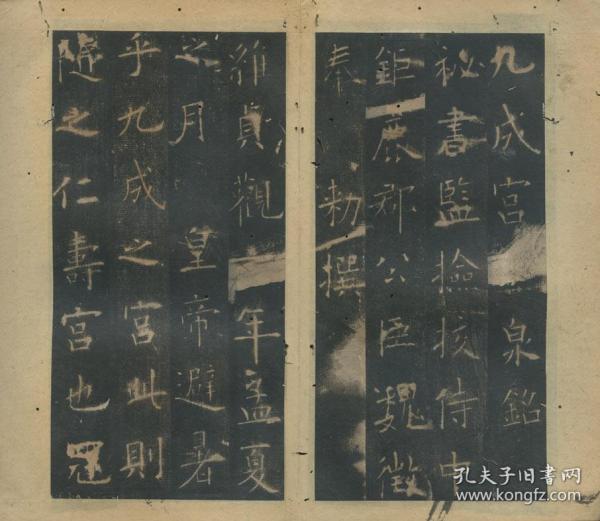 九成宫泉銘
祕書監撿挍侍中
鉅鹿郡公臣魏徵
奉勑撰
維貞觀年孟夏
之月皇帝避暑
乎九成之宫此則
隨之仁壽宫也冠
孔夫子旧书网
www.kongfz.com